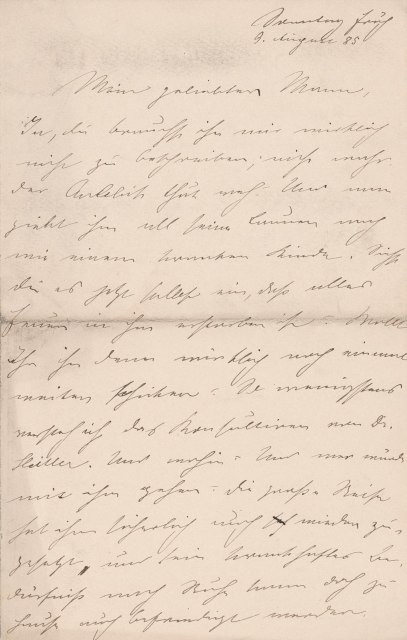 Sonntag früh
9. August 85
Mein geliebter Mann,
Ja, du brauchst ihn mir wirklich
nicht zu beschreiben, nicht mehr
der Anblick thut weh. Und man
zieht ihm all seine Launen nach
wie einem kranken Kinde. Siehst
du es jetzt selbst ein, daß alles
in ihm erstorben ist – Wollt
Ihr ihn denn wirklich noch einmal
weiter schicken – So wenigstens
versteh ich das Konsultiren von Dr.
Und wohin – Und wer würde
mit ihm gehen – die große Reise
hat ihm sicherlich noch wieder zu-
gesetzt, und sein krankhaftes Be-
dürfniß nach Ruhe kann doch zu
Hause auch befriedigt werden.